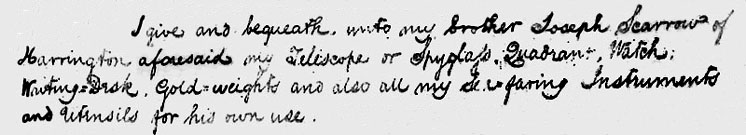 I give and bequeath unto my brother Joseph Scarrow of
Harrington aforesaid my Teliscope or Spyglass, Quadrant, Watch,
Writing=Desk, Gold=weights and also all my Sea=faring Instruments
and Utensils for his own use.